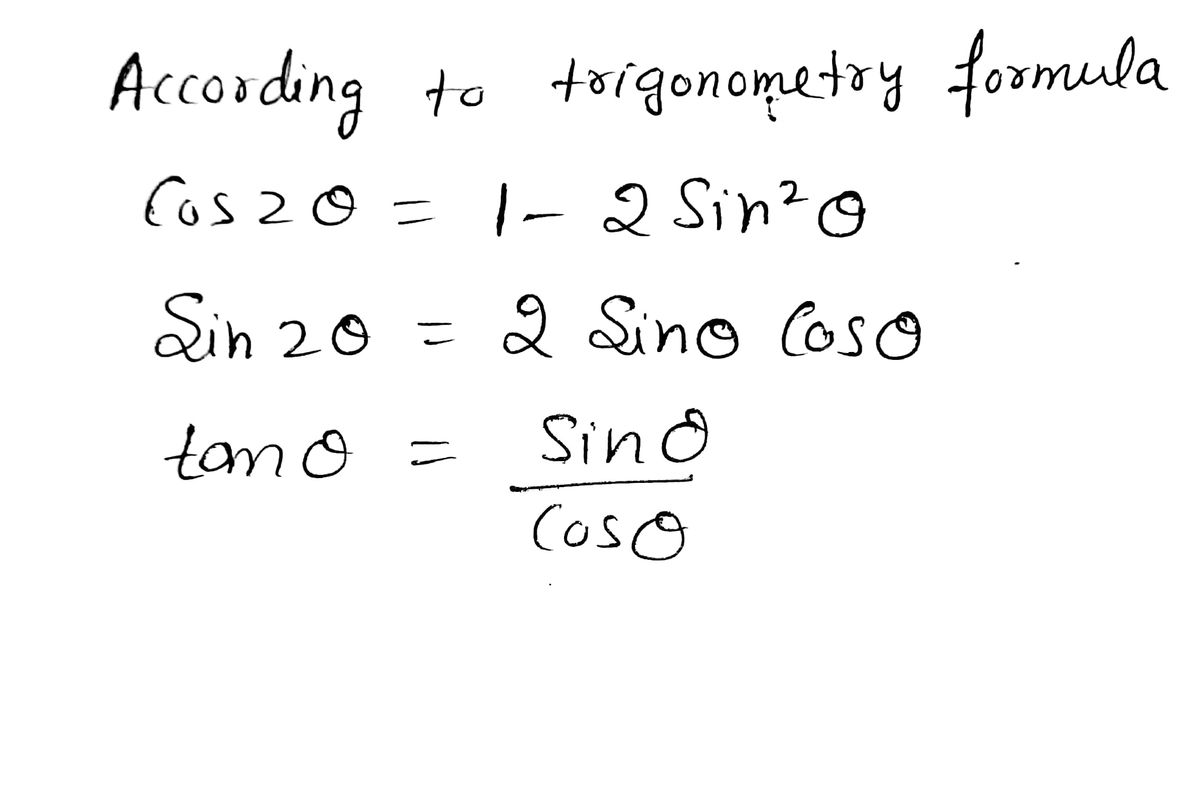 According to trigonometry formula
Cos 2θ = 1 - 2 Sin²θ
Sin 2θ = 2 Sinθ Cosθ
tanθ = Sinθ / Cosθ